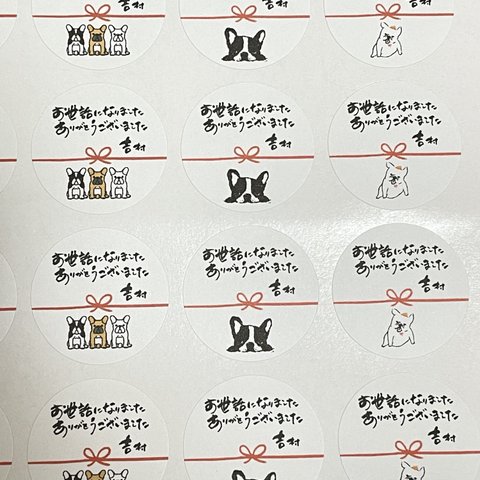 お世話になりました
ありがとうございました
吉村
お世話になりました
ありがとうございました
吉村
お世話になりました
ありがとうございました
吉村
お世話になりました
ありがとうございました
吉村
お世話になりました
ありがとうございました
吉村
お世話になりました
ありがとうございました
吉村
お世話になりました
ありがとうございました
吉村
お世話になりました
ありがとうございました
吉村
お世話になりました
ありがとうございました
吉村